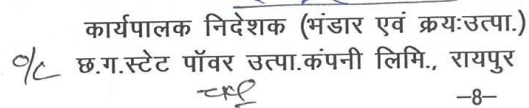 कार्यपालक निदेशक (भंडार एवं क्रय:उत्पा.)
o/c छ.ग.स्टेट पॉवर उत्पा.कंपनी लिमि., रायपुर
–8–